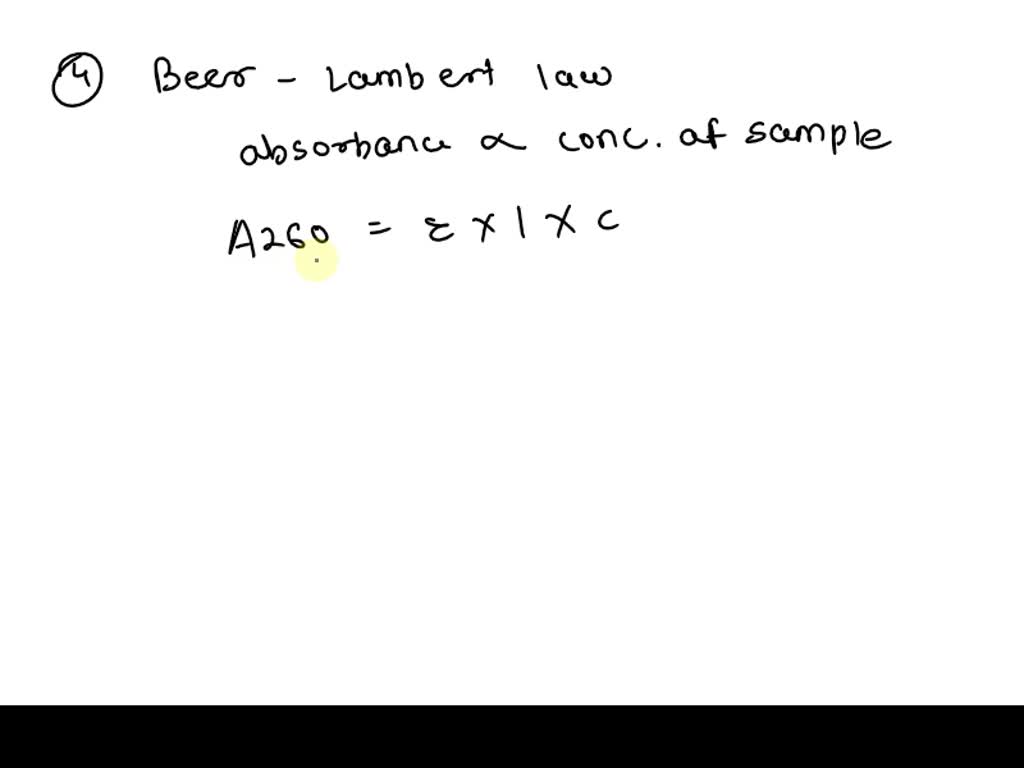 4 Beer - Lambert law
absorbance ∝ conc. of sample
A260 = ε x l x c